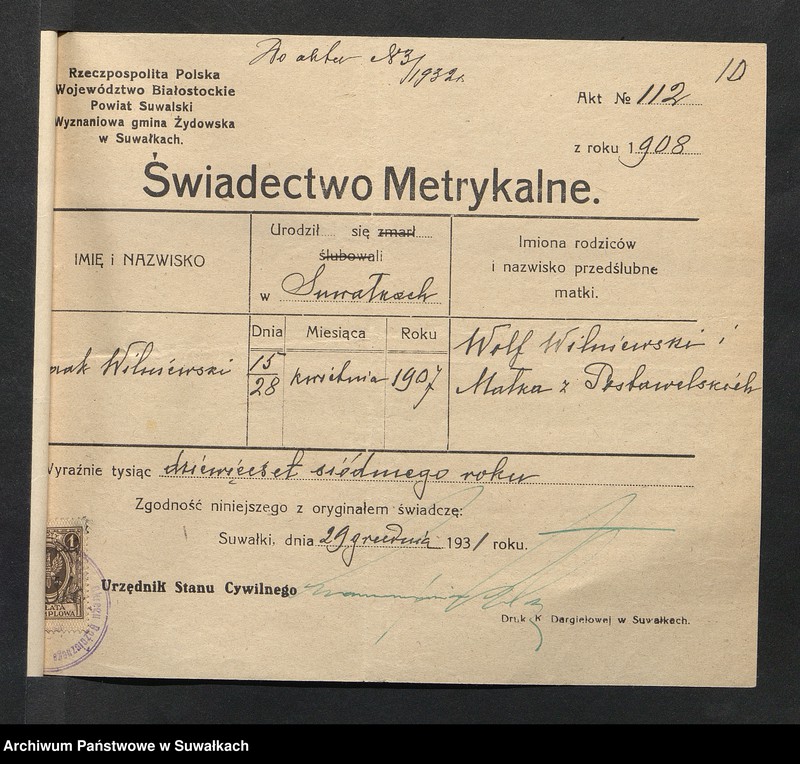 Do aktu №3/1932r.
10
Rzeczpospolita Polska
Województwo Białostockie
Powiat Suwalski
Wyznaniowa gmina Żydowska
w Suwałkach.
Akt № 112
z roku 1908
Świadectwo Metrykalne.
IMIĘ i NAZWISKO
Urodził się zmarł
ślubowali
w Suwałkach
Imiona rodziców
i nazwisko przedślubne
matki.
Dnia Miesiąca Roku
Wilniewski
15/28 kwietnia 1907
Wolf Wilniewski i
Małka z Postawelskich
Wyraźnie tysiąc dziewięćset siódmego roku
Zgodność niniejszego z oryginałem świadczę:
Suwałki, dnia 29 grudnia 1931 roku.
Urzędnik Stanu Cywilnego
Druk. K. Dargiełowej w Suwałkach.
1
Archiwum Państwowe w Suwałkach